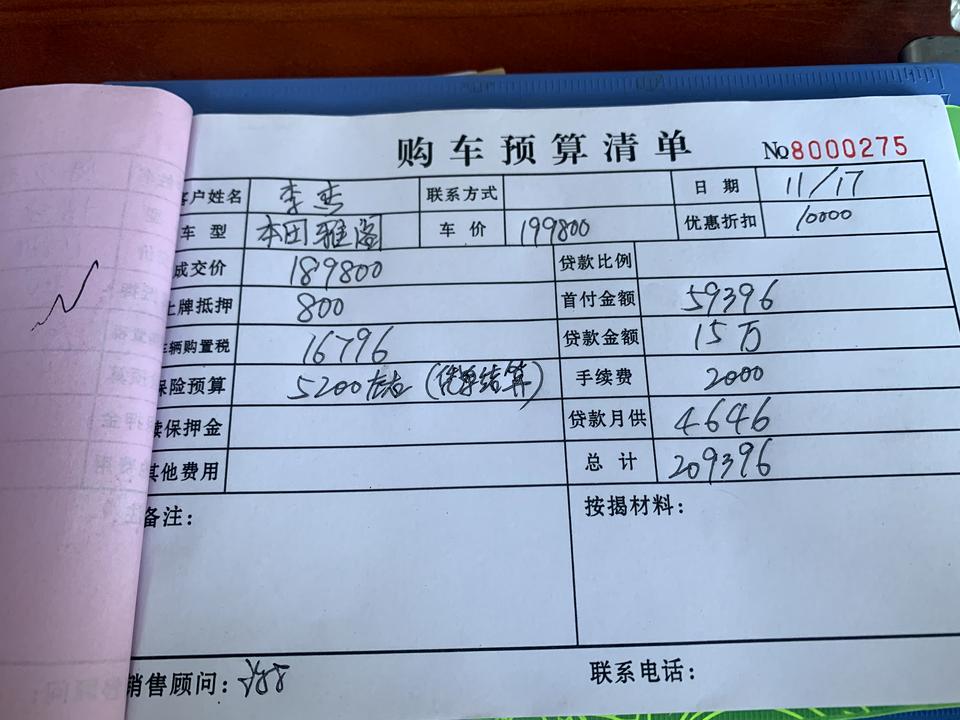 购车预算清单 №8000275
客户姓名 李杰 联系方式 日期 11/17
车型 本田雅阁 车价 199800 优惠折扣 10000
成交价 189800 贷款比例
上牌抵押 800 首付金额 59396
车辆购置税 16796 贷款金额 15万
保险预算 5200左右(凭单结算) 手续费 2000
续保押金 贷款月供 4646
其他费用 总计 209396
备注: 按揭材料:
销售顾问: 联系电话: